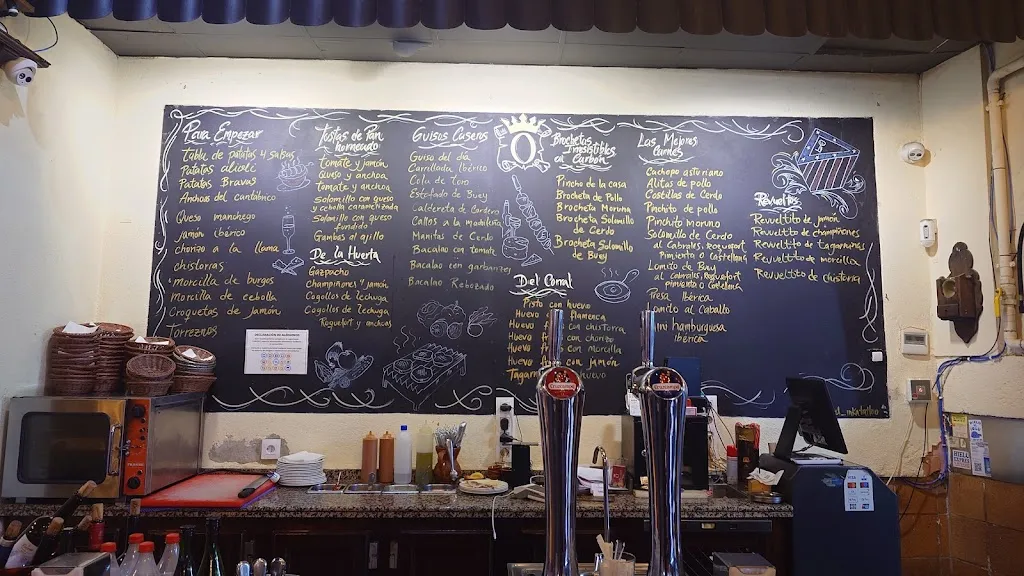 Para Empezar
Tabla de patatas 4 salsas
Patatas alioli
Patatas Bravas
Anchoas del cantábrico
Queso manchego
jamón ibérico
chorizo a la llama
chistorras
morcilla de burgos
Morcilla de cebolla
Croquetas de jamón
Torreznos
Tostas de Pan
horneado
Tomate y jamón
Queso y anchoa
tomate y anchoa
Solomillo con queso
y cebolla caramelizada
Solomillo con queso
fundido
Gambas al ajillo
De la Huerta
Gazpacho
champiñones y jamón
Cogollos de lechuga
Cogollos de lechuga
Roquefort y anchoas
Guisos Caseros
Guiso del día
Carrillada Ibérico
Cola de toro
Estofado de Buey
Caldereta de Cordero
Callos a la madrileña
Manitas de Cerdo
Bacalao con tomate
Bacalao con garbanzos
Bacalao Rebozado
O
Brochetas
Irresistibles
al Carbón
Pincho de la casa
Brocheta de Pollo
Brocheta Moruna
Brocheta Solomillo
de Cerdo
Brocheta Solomillo
de Buey
Del Corral
Pisto con huevo
Huevo flamenca
Huevo con chistorra
Huevo con chorizo
Huevo con morcilla
Huevo con jamón
huevo
Las Mejores
Carnes
Cachopo asturiano
Alitas de pollo
Costillas de Cerdo
Pinchito de pollo
Pinchito moruno
Solomillo de Cerdo
al Cabrales, Roquefort
Pimienta o Castellana
Lomito de Buey
al cabrales, Roquefort
pimienta o Castellana
Presa Ibérica
al Caballo
hamburguesa
ibérica
Revueltos
Revueltito de jamón
Revueltito de champiñones
Revueltito de tagarninas
Revueltito de morcilla
Revueltito de chistorra